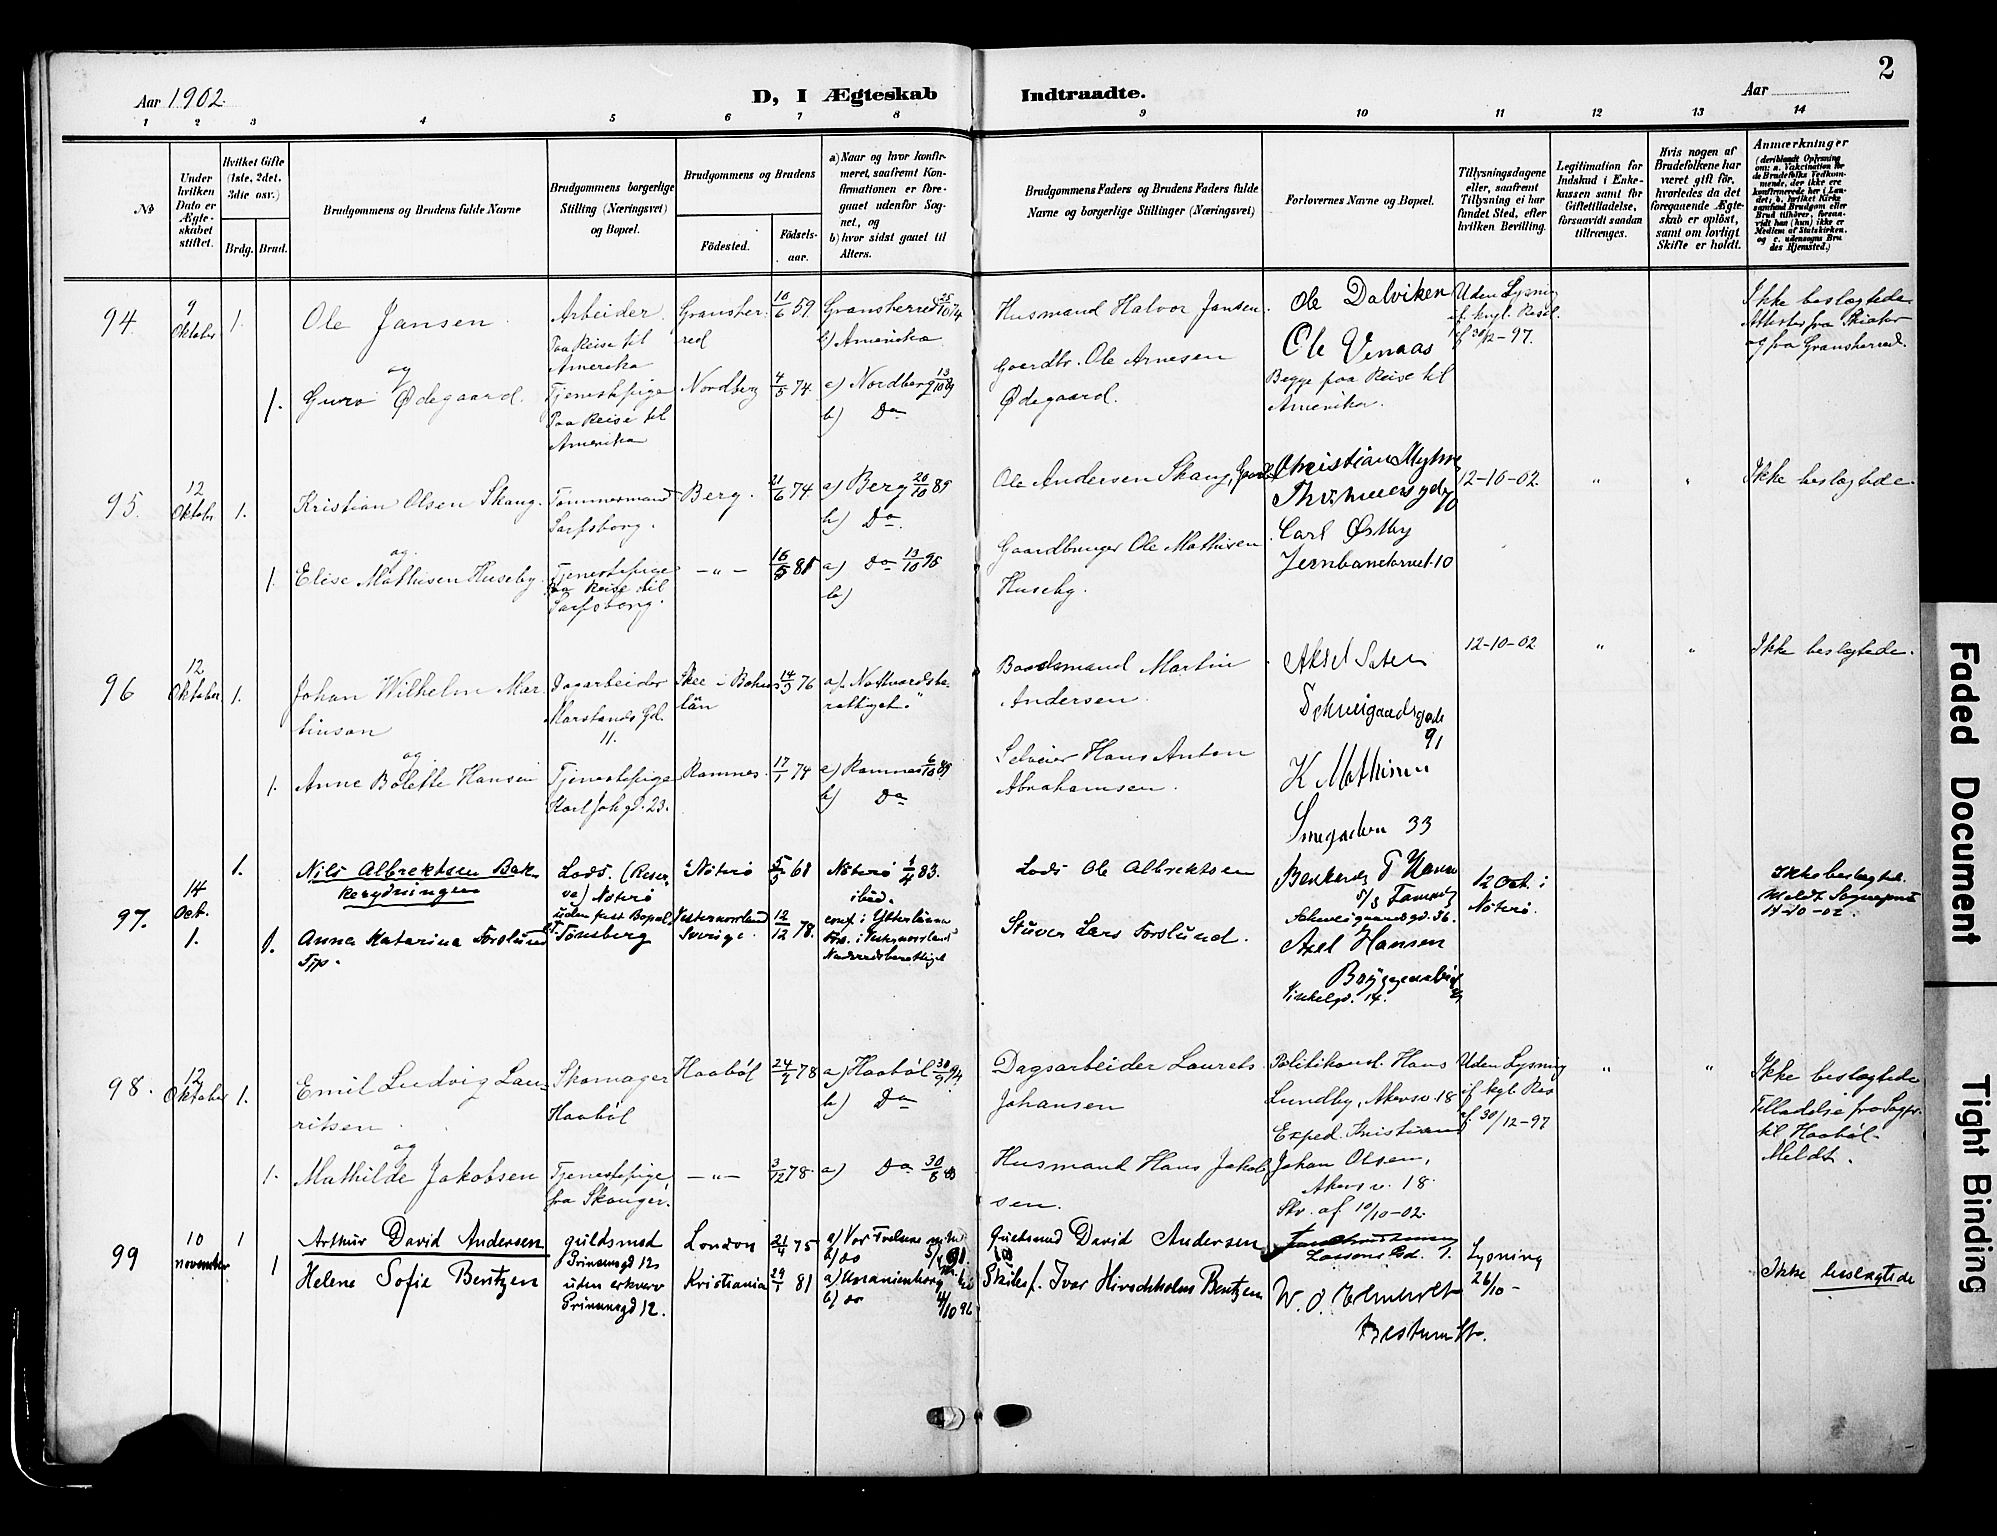 2
Aar 1902.
D, I Ægteskab Indtraadte.
Aar
1 2 3 4 5 6 7 8 9 10 11 12 13 14
No
Under hvilken Dato er Ægteskabet stiftet.
Hvilket Gifte (1ste, 2det, 3die osv.)
Brdg. Brud.
Brudgommens og Brudens fulde Navne
Brudgommens borgerlige Stilling (Næringsvei) og Bopæl.
Brudgommens og Brudens
Födested.
Födselsaar.
a) Naar og hvor konfirmeret, saafremt Konfirmationen er foregaaet udenfor Sognet, og
b) hvor sidst gaaet til Alters.
Brudgommens Faders og Brudens Faders fulde Navne og borgerlige Stillinger (Næringsvei)
Forlovernes Navne og Bopæl.
Tillysningsdagene eller, saafremt Tillysning ei har fundet Sted, efter hvilken Bevilling.
Legitimation for Indskud i Enkekassen samt for Giftetilladelse, forsaavidt saadan tiltrænges.
Hvis nogen af Brudefolkene har været gift för, hvorledes da det foregaaende Ægteskab er oplöst, samt om lovligt Skifte er holdt.
Anmærkninger
94
9 Oktober
1.
Ole Jansen
og
1. Guro Ødegaard.
Arbeider
Paa Reise til
Amerika
Tjenestepige
Paa Reise til
Amerika
Gransherred
Nordberg
10/6 59
4/5 74
Gransherred 25/10 74
b) Amerika
a) Nordberg 13/10 89
b) Do
Husmand Halvor Jansen.
Gaardbr. Ole Arnesen
Ødegaard.
Ole Dalviken
Ole Venaas
Begge paa Reise til
Amerika.
Uden Lysning
if. kgl. Resol.
af 30/12-97.
Ikke beslægtede
Attester fra
og fra Gransherred.
95.
12 Oktober
1.
Kristian Olsen Skaug.
og
1. Elise Mathisen Huseby.
Tømmermand
Sarpsborg.
Tjenestepige
Paa Reise til
Sarpsborg.
Berg.
-"-
21/6 74
16/5 81
a) Berg 20/10 89
b) Do.
a) Do 13/10 95
b)
Ole Andersen Skaug,
Gaardbruger Ole Mathisen
Huseby.
Christian Myhre
Carl Østby
Jernbanetorvet 10
12-10-02.
" "
Ikke beslægtede.
96
12 Oktober
1.
Johan Wilhelm Mar-
tinson
og
1. Anne Bolette Hansen
Dagarbeider
Marstrands Gd.
11.
Tjenestepige
Karl Joh gd. 23.
Skee i Bohus
län
Ramnes.
14/3 76
17/1 74
a) Nattvardsbe-
rattiget."
a) Ramnes 6/10 89
b) Do
Baadsmand Martin
Andersen.
Selveier Hans Anton
Abrahamsen.
Aksel
Schweigaardsgade
91
K Mathisen
Smegaden 33
12-10-02
" "
Ikke beslægtede.
97.
14 Oct.
1.
1.
Nils Albrektsen Bak-
kerydningen
1. Anna Katarina Forslund
Tjp.
Lods. (Reser-
ve) Nöterö
uden fast Bopæl
Tönsberg
Nöterö
Vesternorrland
Sverige.
5/5 68
12/12 78.
Nöterö 1/4 83.
ibid.
conf. i Ytterlänna
i Vesternorrland
Lods Ole Albrektsen
Stuver Lars Forslund.
Schweigaardsgd. 36.
Axel Hansen
Bryggearbeid
Vinkelgd. 14.
12 Oct. i
Nöterö.
Ikke beslægtet.
14-10-02.
98.
12 Oktober
1.
Emil Ludvig Lau-
ritsen.
og
1. Mathilde Jakobsen
Skomager
Haabøl
Tjenestepige
fra Skauger.
Haabøl
-"-
24/7 78
3/12 78.
a) Haabøl 30/9 94
b) Do
a) Do
Dagsarbeider Laurets
Johansen
Husmand Hans Jakob-
sen.
Politikonst. Hans
Lundby, Akersv. 18
Exped. Kristian
Johan Olsen,
Akersv. 18.
Skr. af 10/10-02.
Uden Lysning
if kgl. Res
af 30/12-97
" "
Ikke beslægtede
Tilladelse fra Sogpr.
til Haabøl-
Meldt.
99
10 november
1 1
Arthur David Andersen
Helene Sofie Bentzen
guldsmed
Prinsensgd 12
uten erkverv
Prinsensgd 12.
London
Kristiania
21/4 75
29/1 81
a) Vor Frelsers
b) do
a) Uranienborg
b) do 4/10 96
Guldsmed David Andersen
Skibsf. Ivar Hirschholm Bentzen
Lysning
26/10-
Ikke beslægtede
Faded Document
Tight Binding